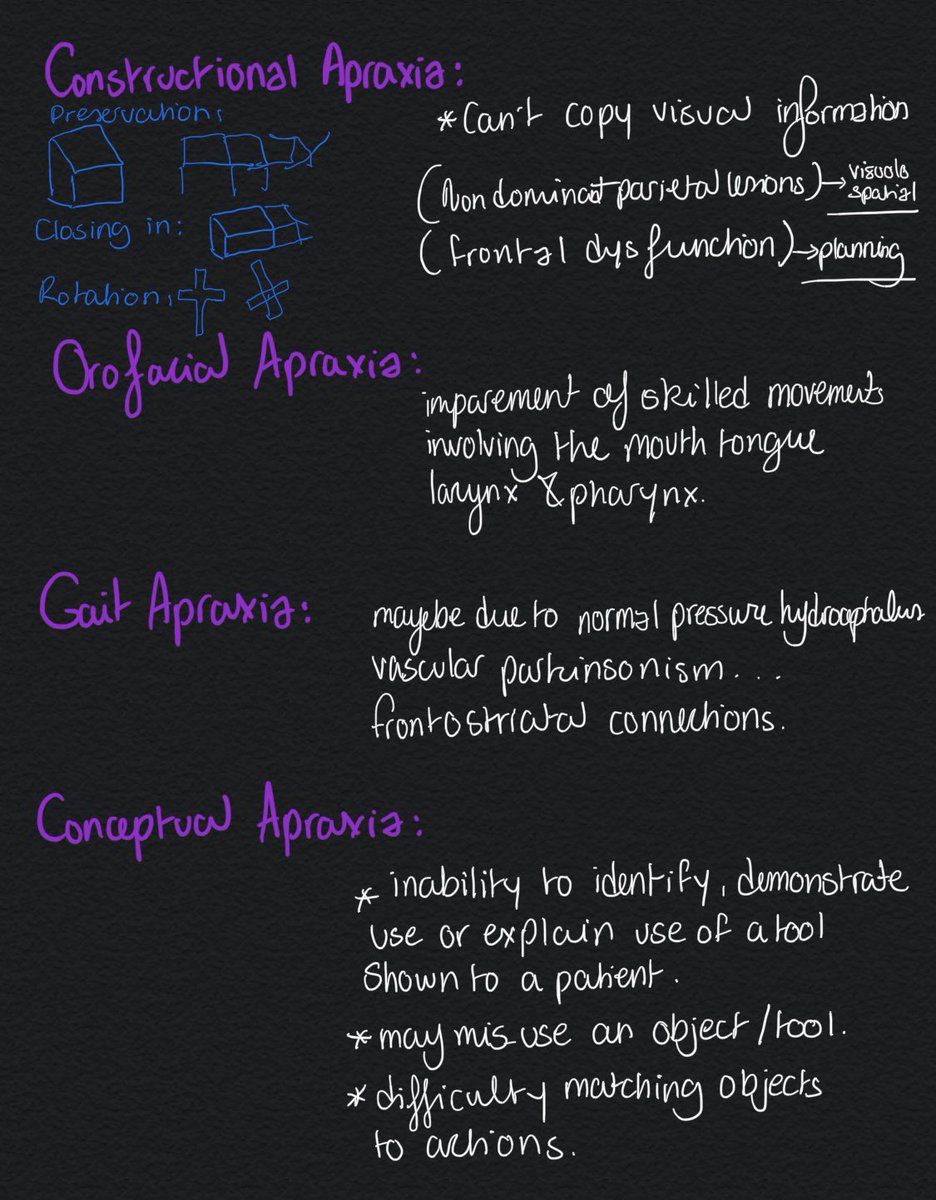 Constructional Apraxia:
Preservation:
Closing in:
Rotation:
*Can't copy visual information
(Non dominant parietal lesions)→visuals spatial
(frontal dysfunction)→planning
Orofacial Apraxia:
imparement of skilled movements
involving the mouth tongue
larynx & pharynx.
Gait Apraxia:
mayebe due to normal pressure hydrocephalus
vascular parkinsonism...
frontostriatal connections.
Conceptual Apraxia:
* inability to identify, demonstrate
use or explain use of a tool
shown to a patient.
* may mis-use an object/tool.
* difficulty matching objects
to actions.